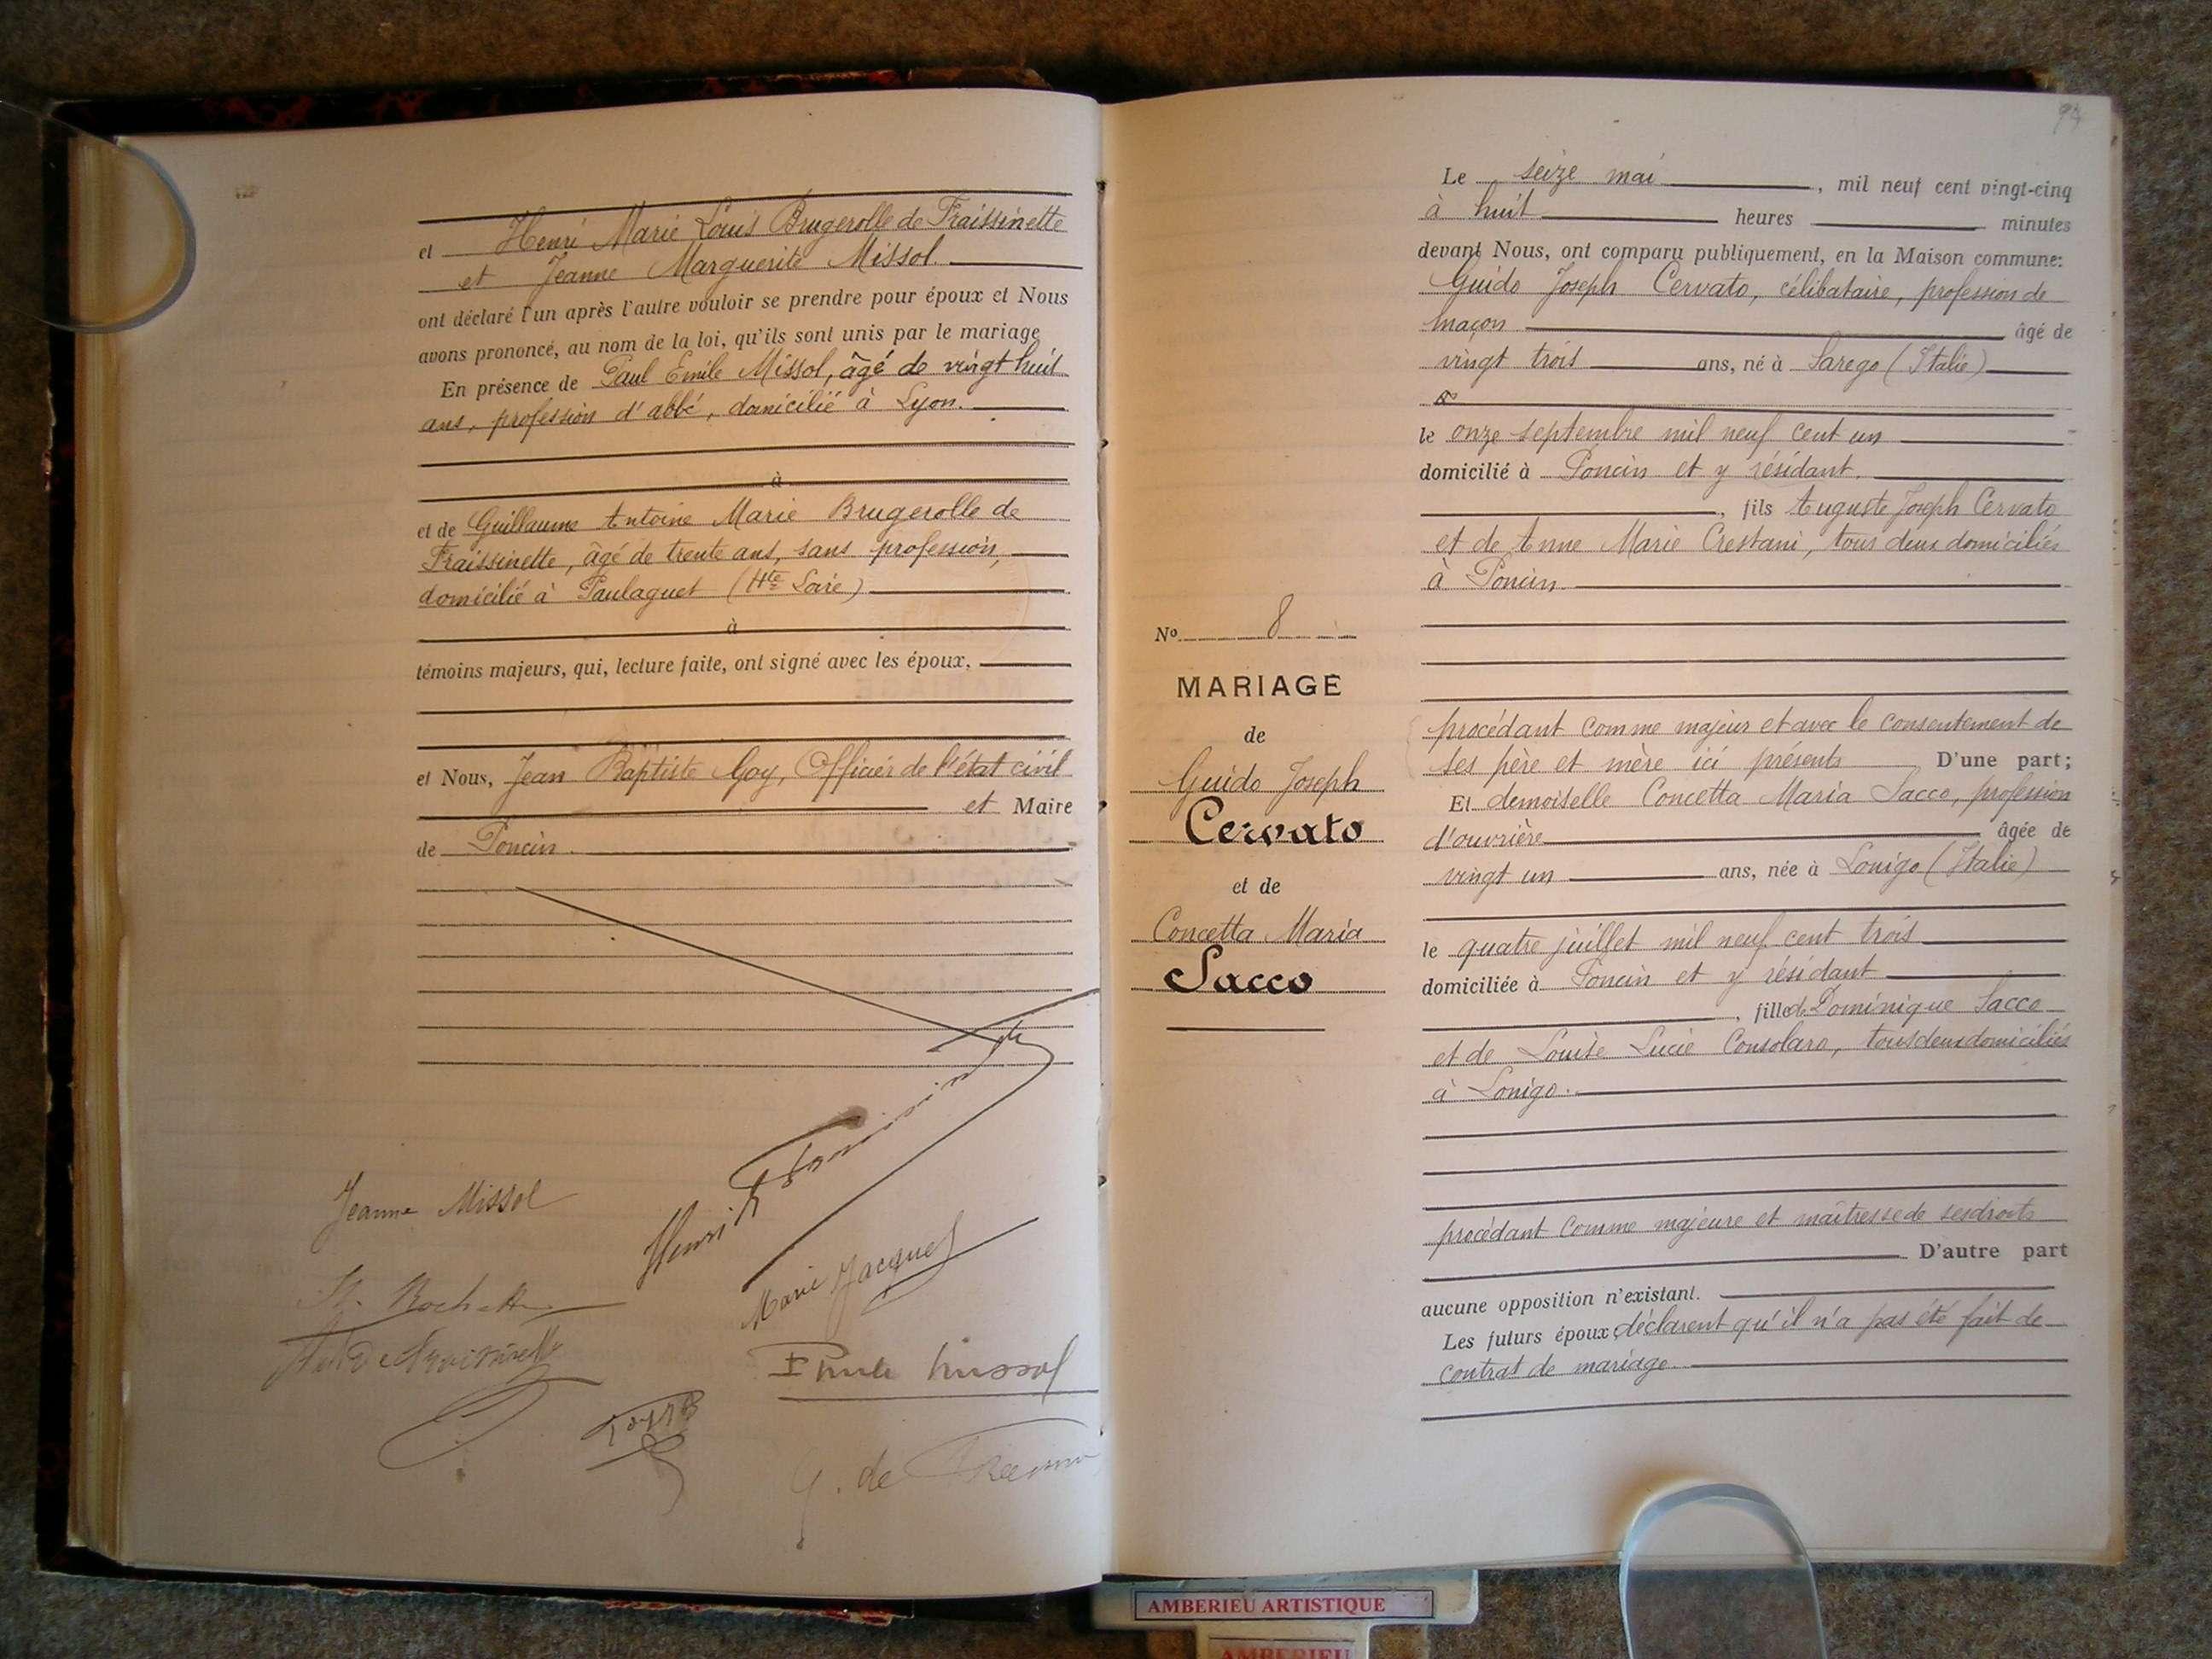 et Henri Marie Louis Brugerolle de Fraissinette
et Jeanne Marguerite Missol.
ont déclaré l'un après l'autre vouloir se prendre pour époux et Nous
avons prononcé, au nom de la loi, qu'ils sont unis par le mariage
En présence de Paul Emile Missol, âgé de vingt huit
ans, profession d'abbé, domicilié à Lyon.
à
et de Guillaume Antoine Marie Brugerolle de
Fraissinette, âgé de trente ans, sans profession,
domicilié à Paulaguet (Hte Loire)
à
témoins majeurs, qui, lecture faite, ont signé avec les époux,
et Nous, Jean Baptiste Goy, Officier de l'état civil
et Maire
de Poncin.
Jeanne Missol
Henri
Marie Jacquet
Emile Missol
G. de
94
Le seize mai, mil neuf cent vingt-cinq
à huit heures minutes
devant Nous, ont comparu publiquement, en la Maison commune:
Guido Joseph Cervato, célibataire, profession de
maçon âgé de
vingt trois ans, né à Sarego (Italie)
le onze septembre mil neuf cent un
domicilié à Poncin et y résidant.
, fils Auguste Joseph Cervato
et de Anne Marie Crestani, tous deux domiciliés
à Poncin.
procédant comme majeur et avec le consentement de
ses père et mère ici présents D'une part;
Et demoiselle Concetta Maria Sacco, profession
d'ouvrière âgée de
vingt un ans, née à Lonigo (Italie)
le quatre juillet mil neuf cent trois
domiciliée à Poncin et y résidant
, fille de Dominique Sacco
et de Louise Lucie Consolaro, tous deux domiciliés
à Lonigo.
procédant comme majeure et maîtresse de ses droits
D'autre part
aucune opposition n'existant.
Les futurs époux déclarent qu'il n'a pas été fait de
contrat de mariage.
No 8
MARIAGE
de
Guido Joseph
Cervato
et de
Concetta Maria
Sacco
AMBERIEU ARTISTIQUE
AMBERIEU